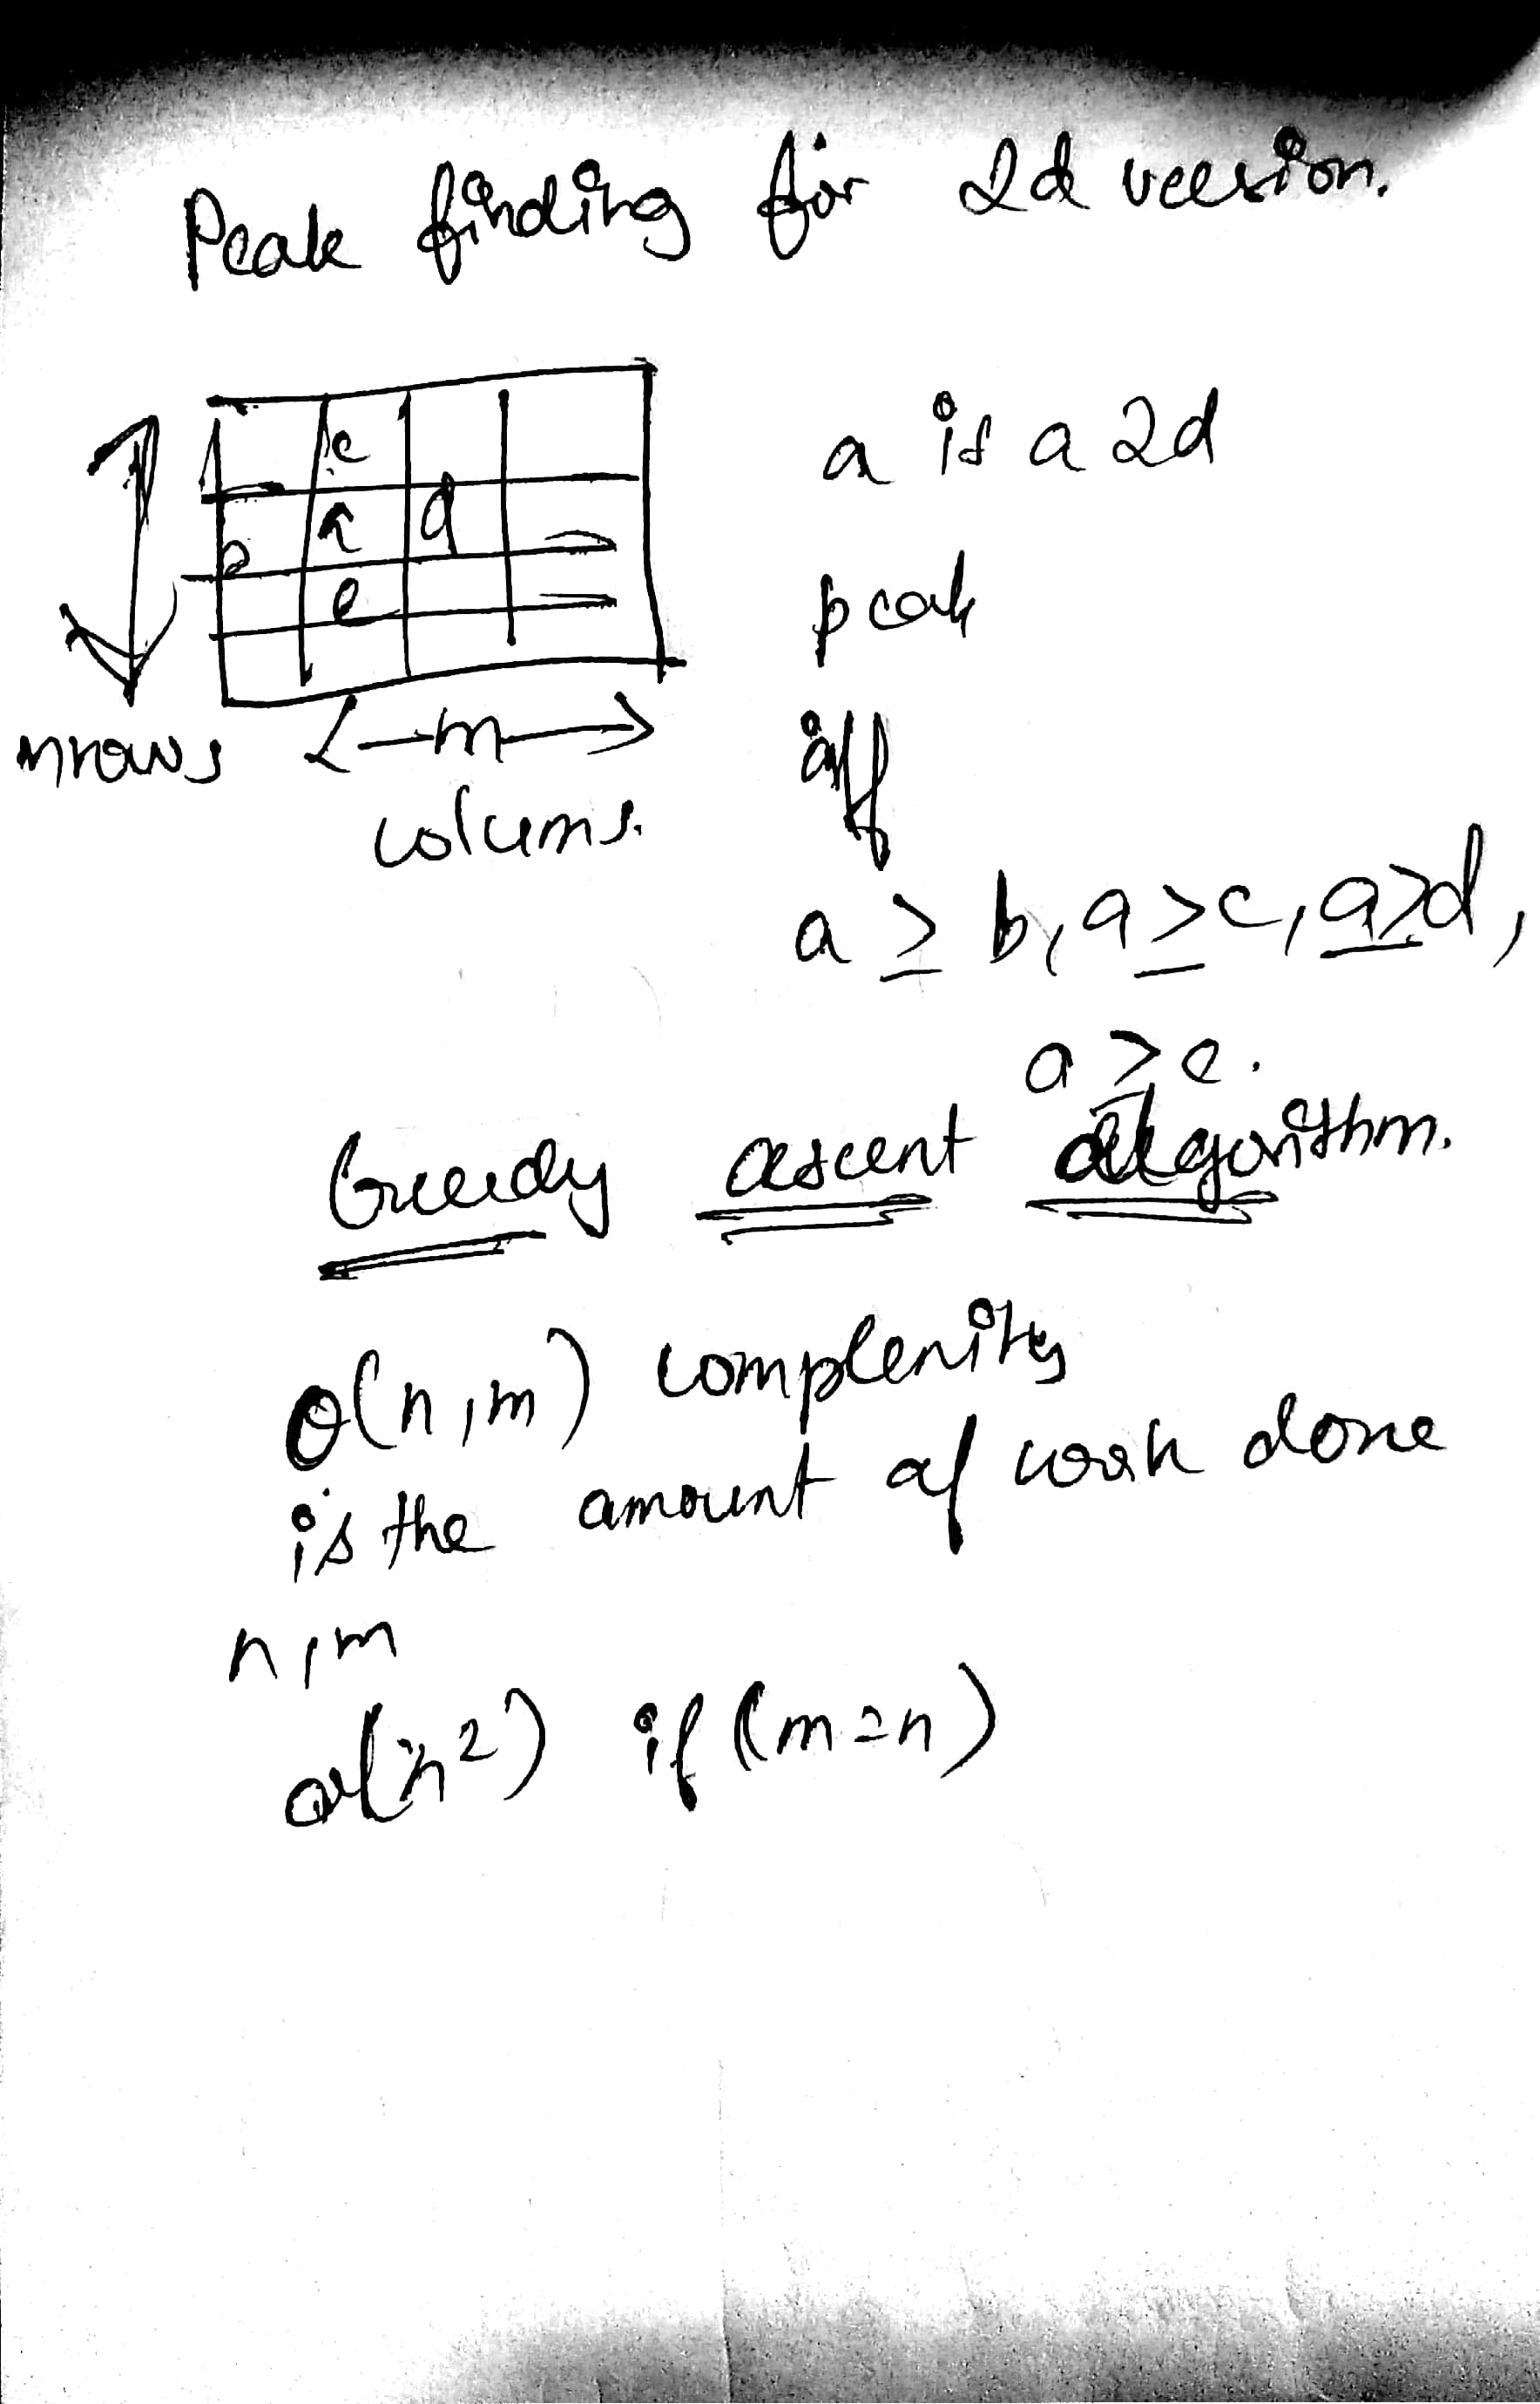 Peak finding for 2d version.
c
a d
b
e
n rows
m
colums.
a is a 2d
peak
iff
a ≥ b, a ≥ c, a ≥ d,
a ≥ e.
Greedy ascent algorithm.
θ(n,m) complexity
is the amount of work done
n,m
θ(n²) if (m=n)